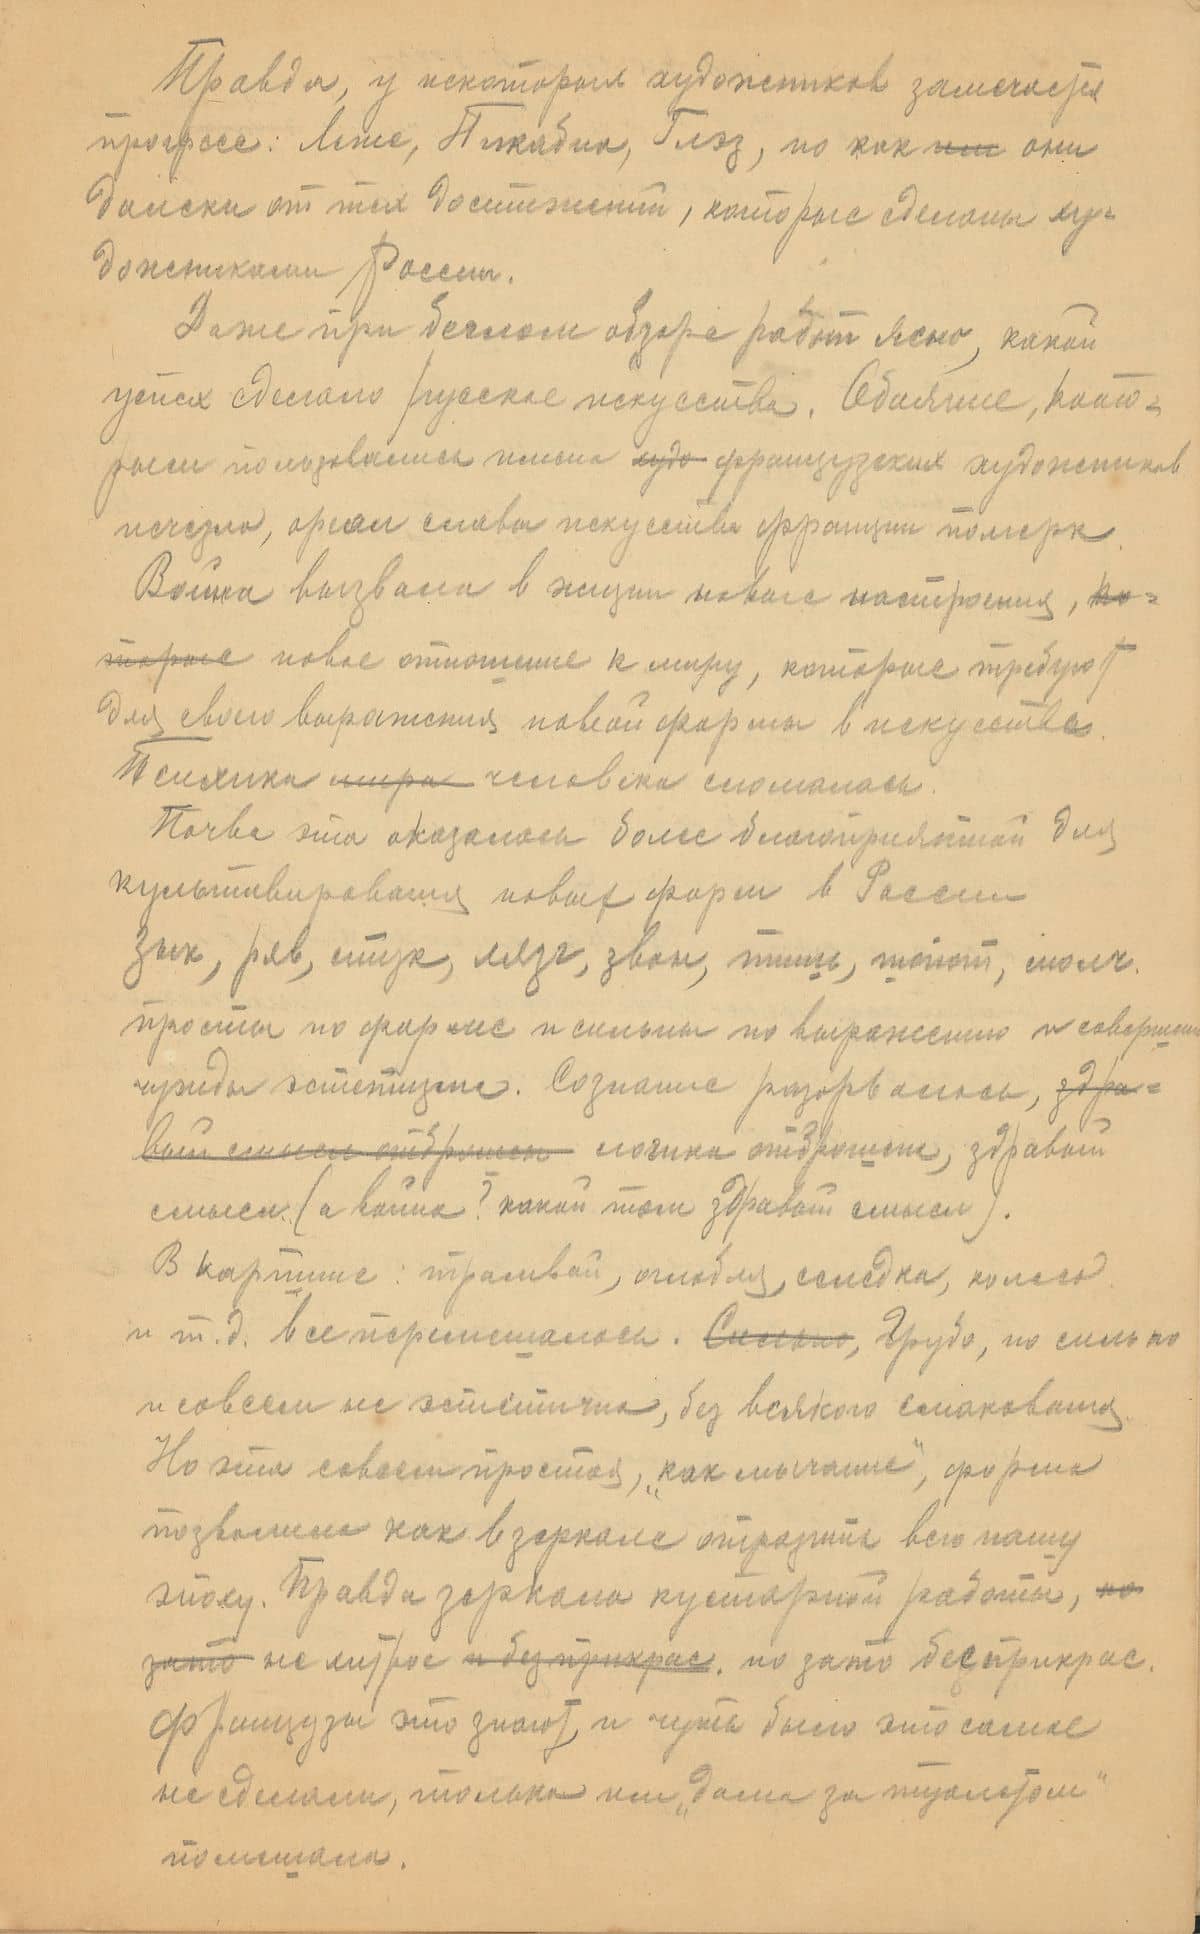 Правда, у некоторых художников замечается
прогресс: Леже, Пикабиа, Глэз, но как им они
далеки от тех достижений, которые сделаны ху=
дожниками России.
Даже при беглом обзоре работ ясно, какой
успех сделало русское искусство. Обаяние, кото=
рым пользовались имена худо французских художников
исчезло, ореол славы искусства франции померк.
Война вызвала в жизни новые настроения, ко=
торые новое отношение к миру, которые требуют
для своего выражения новой формы в искусстве.
Психика мира человека сломалась.
Почва эта оказалась более благоприятной для
культивирования новых форм в России
Зык, рёв, стук, лязг, звон, тишь, топот, молч.
просты по форме и сильны по выражению и соверш
чужды эстетизма. Сознание разорвалось, здра=
вый смысл отброшен логика отброшена, здравый
смысл (а война? какой там здравый смысл).
В картине: трамвай, оглобля, селедка, колесо
и т.д. все перемешалось. Сильно, Грубо, но сильно
и совсем не эстетично, без всякого смакования.
Но эта совсем простая, „как мычание“, форма
позволила как в зеркале отразить всю нашу
эпоху. Правда зеркало кустарной работы, но
зато не хитрое и без прикрас. но зато беcприкрас.
французы это знают, и чуть было это самое
не сделали, только им „дама за туалетом“
помешала.